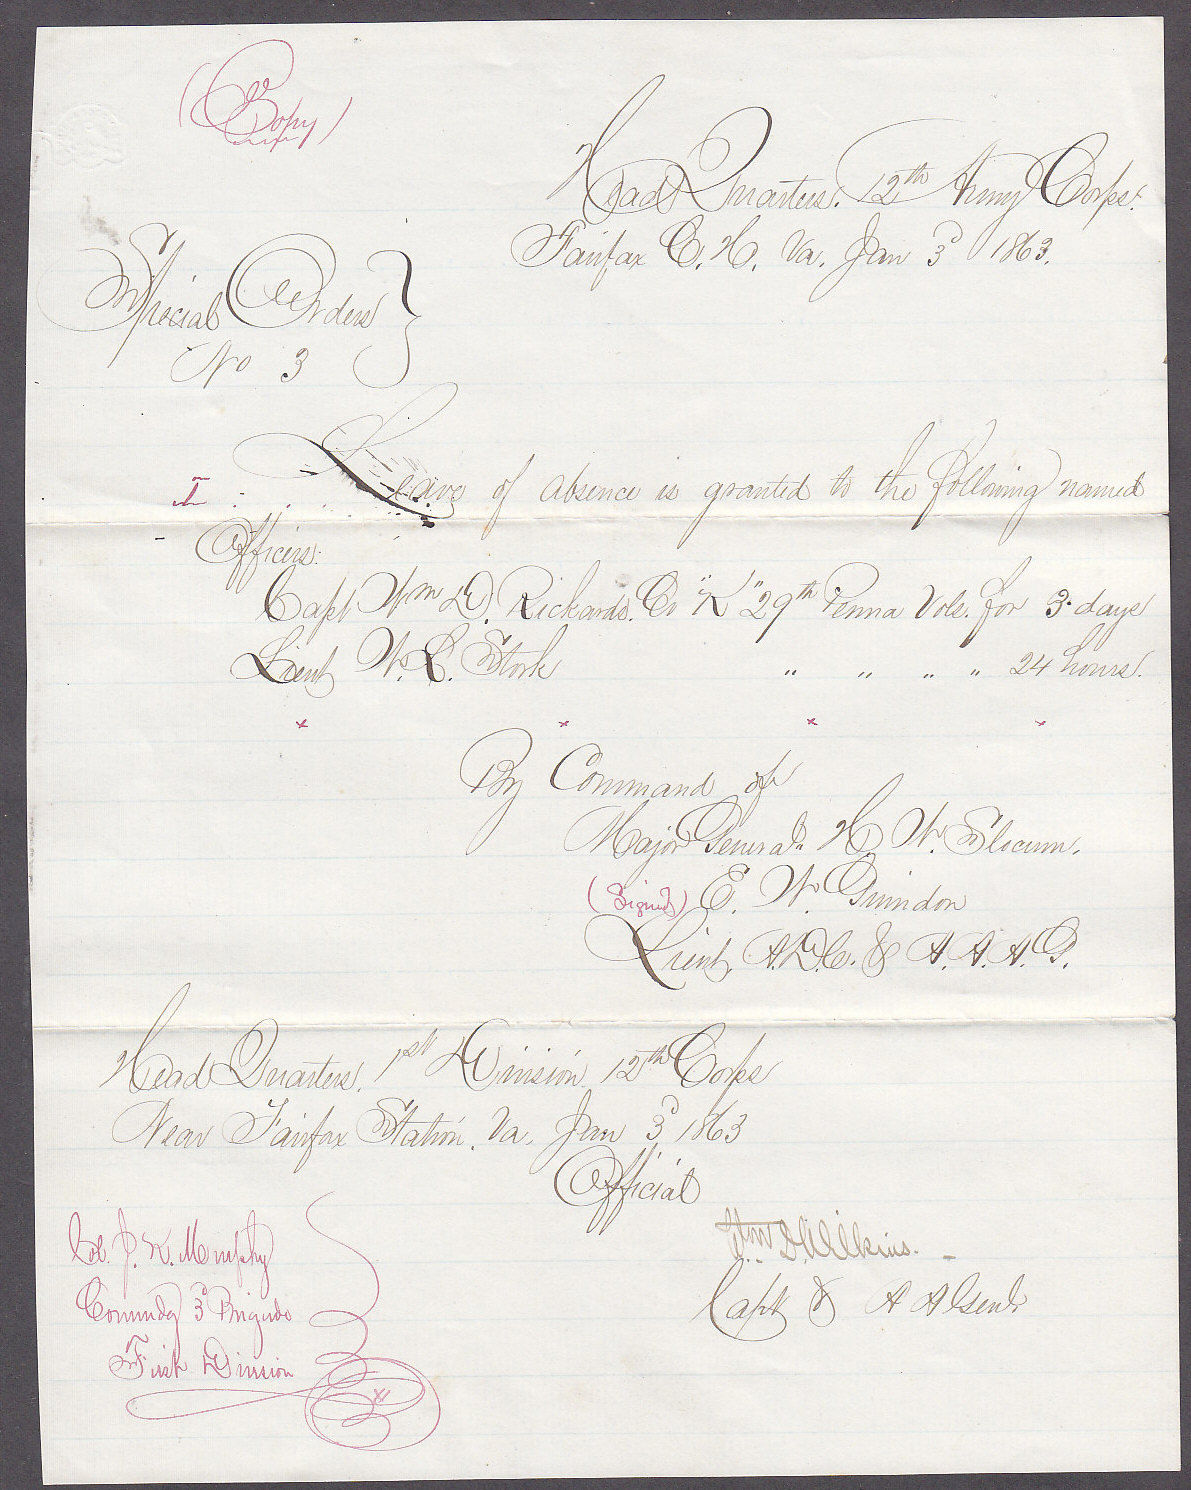 (Copy)
Head Quarters. 12th Army Corps.
Fairfax C. H. Va. Jan 3d 1863.
Special Orders }
No 3
I Leave of absence is granted to the following named
Officers:
Capt Wm D. Rickards. Co "K" 29th Penna Vols. for 3 days
Lieut W. L. Stork " " " " 24 hours.
x x x x
By Command of
Major General H. W. Slocum.
(Signed) E. W. Guindon
Lieut, A.D.C. & A. A. A. G.
Head Quarters, 1st Division 12th Corps
Near Fairfax Station, Va. Jan 3d 1863
Official
Wm D. Wilkins.
Capt & A A Genl
Col. J. K. Murphy
Commdg 3d Brigade
First Division